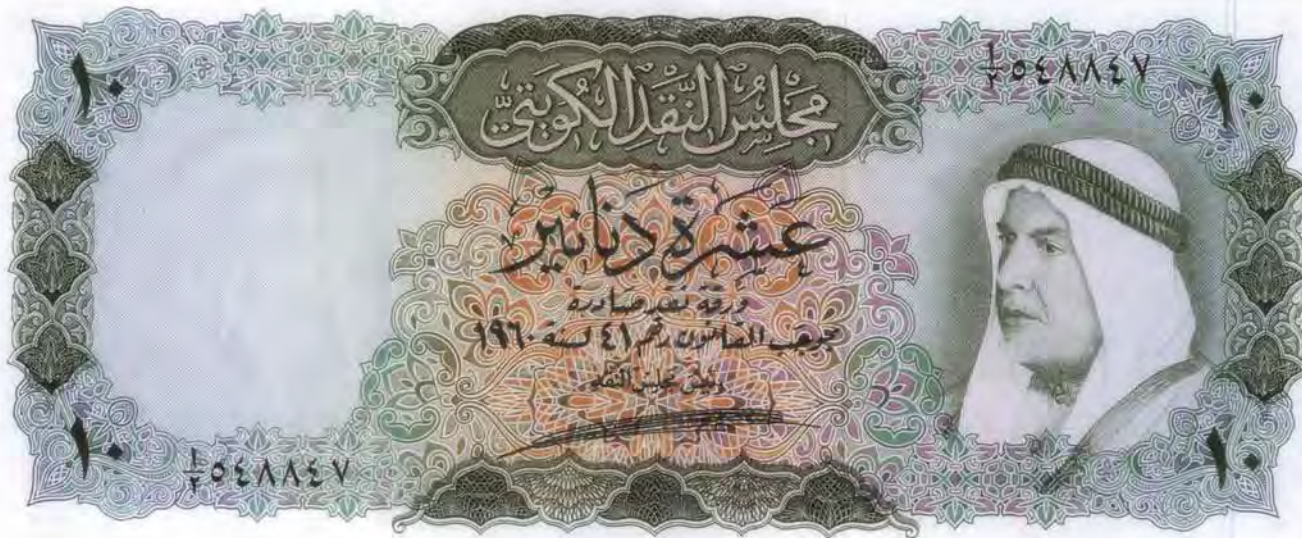 ١٠
١/٢ ٥٤٨٨٤٧
١٠
مجلس النقد الكويتي
عشرة دنانير
ورقة نقد صادرة
بموجب القانون رقم ٤١ لسنة ١٩٦٠
رئيس مجلس النقد
١٠
١/٢ ٥٤٨٨٤٧
١٠